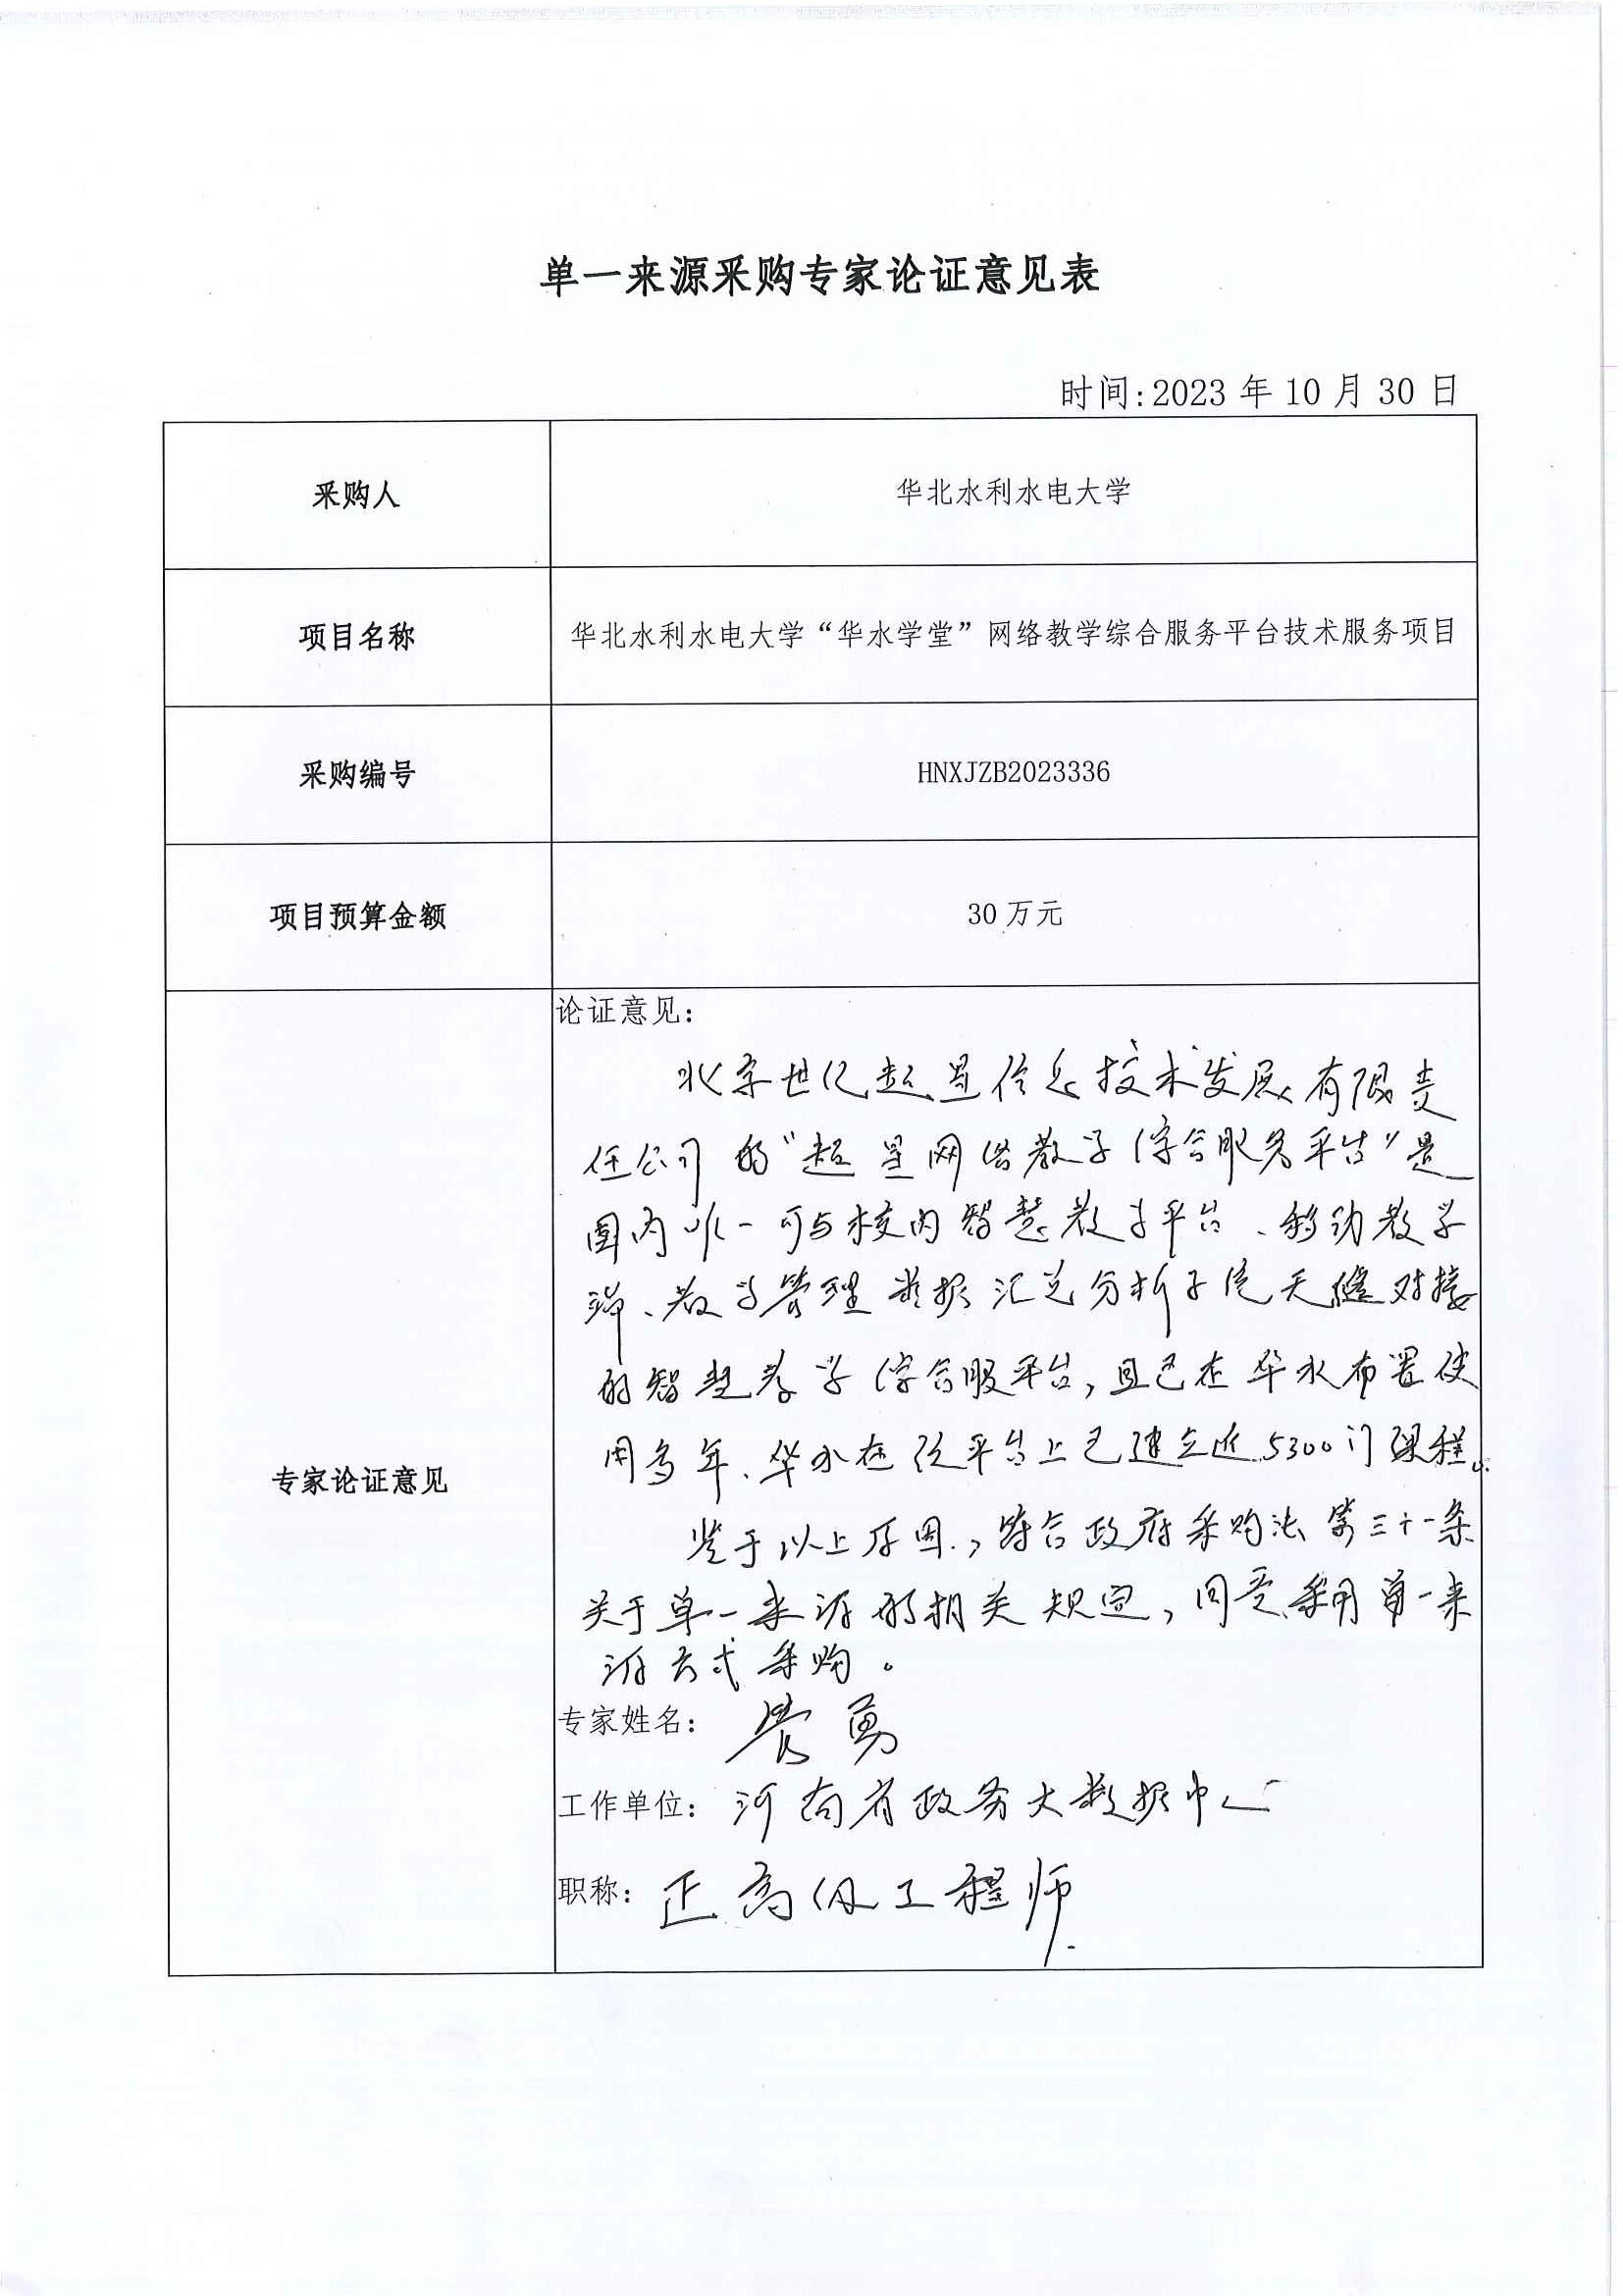 单一来源采购专家论证意见表
时间:2023 年 10 月 30 日
采购人
华北水利水电大学
项目名称
华北水利水电大学“华水学堂”网络教学综合服务平台技术服务项目
采购编号
HNXJZB2023336
项目预算金额
30 万元
专家论证意见
论证意见：
北京世纪超星信息技术发展有限责
任公司的“超星网络教学综合服务平台”是
国内唯一可与校内智慧教学平台、移动教学
端、教学管理数据汇总分析系统无缝对接
的智慧教学综合服平台，且已在华水布置使
用多年、华水在该平台上已建立近5300门课程。
鉴于以上原因，符合政府采购法第三十一条
关于单一来源的相关规定，同意采用单一来
源方式采购。
专家姓名：管勇
工作单位：河南省政务大数据中心
职称：正高级工程师